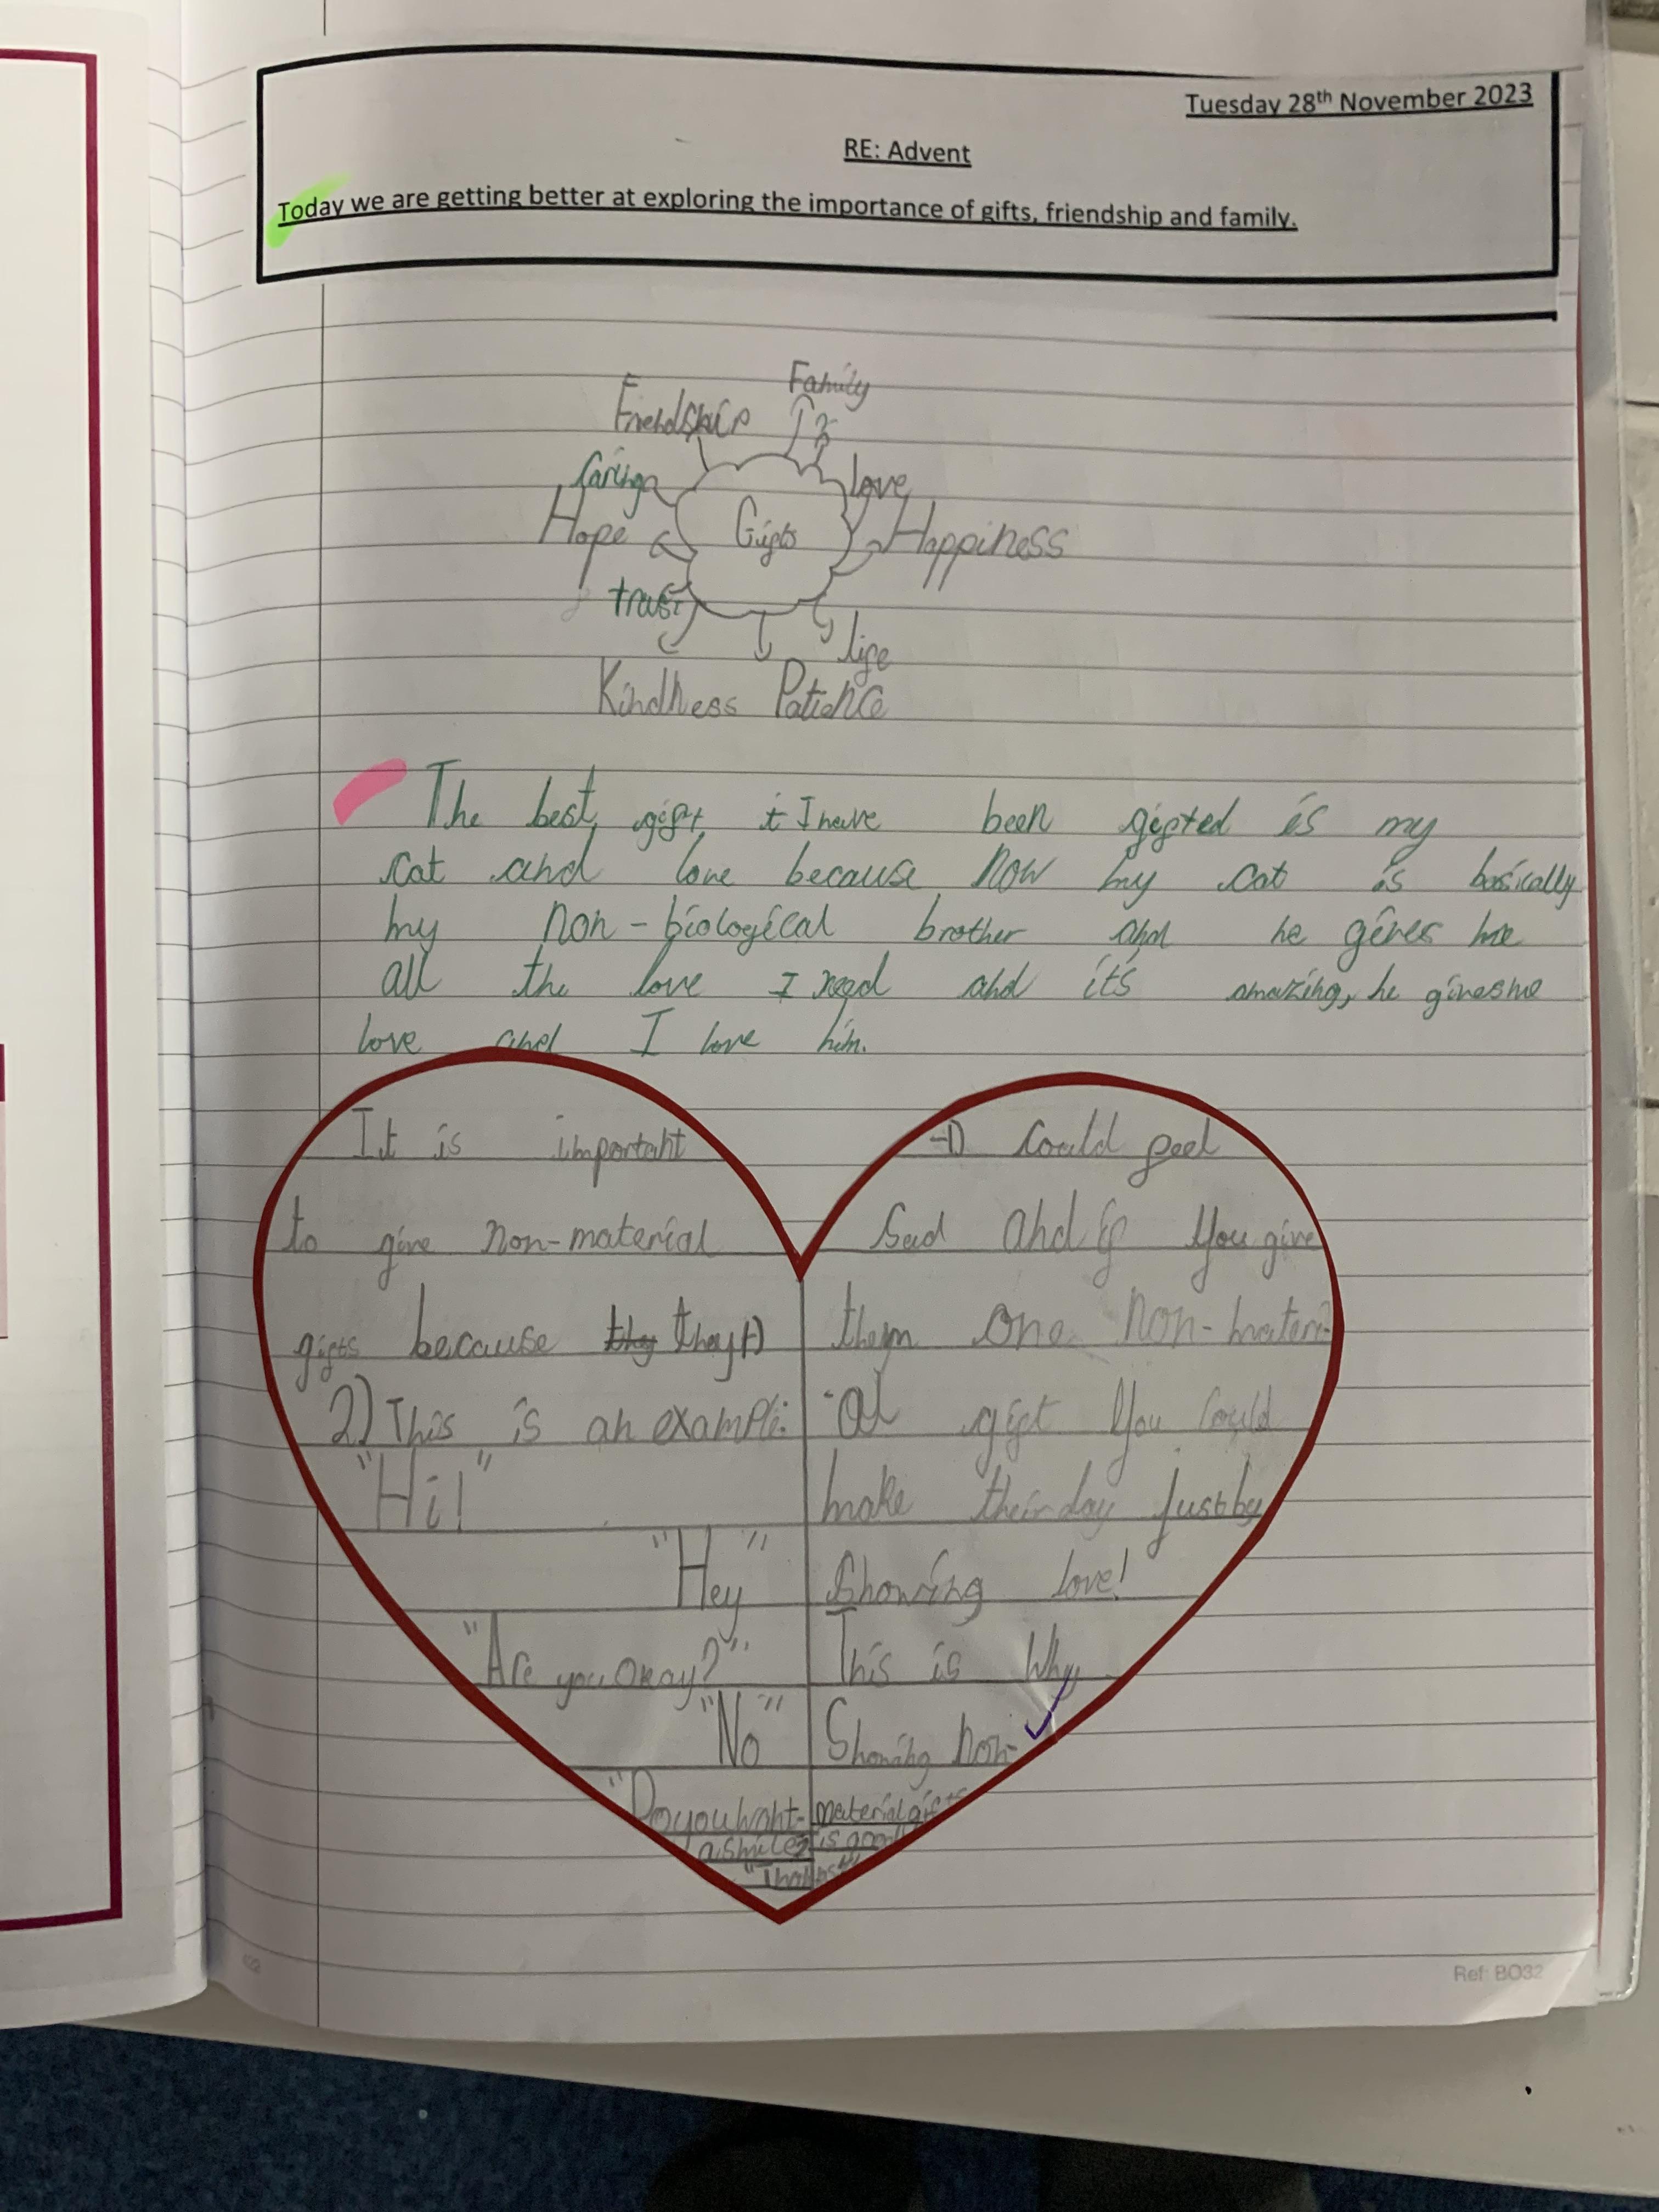 Tuesday 28th November 2023
RE: Advent
Today we are getting better at exploring the importance of gifts, friendship and family.
Family
Friendship
Caring
love
Hope
Gifts
Happiness
trust
life
Kindness Patience
The best gift I have been gifted is my
cat and love because now my cat is basically
my non-biological brother and he gives me
all the love I need and it's amazing, he gives me
love and I love him.
It is important
to give non-material
gifts because they 1)
2) This is an example:
"Hi!"
"Hey"
"Are you okay?"
"No"
"Do you want-
a smile?
"Thanks"
-1) Could feel
Sad and if You give
them one non-materi
-al gift You Could
make their day Just by
Showing love!
This is Why
Showing non-
material gifts
is good
Ref: BO32